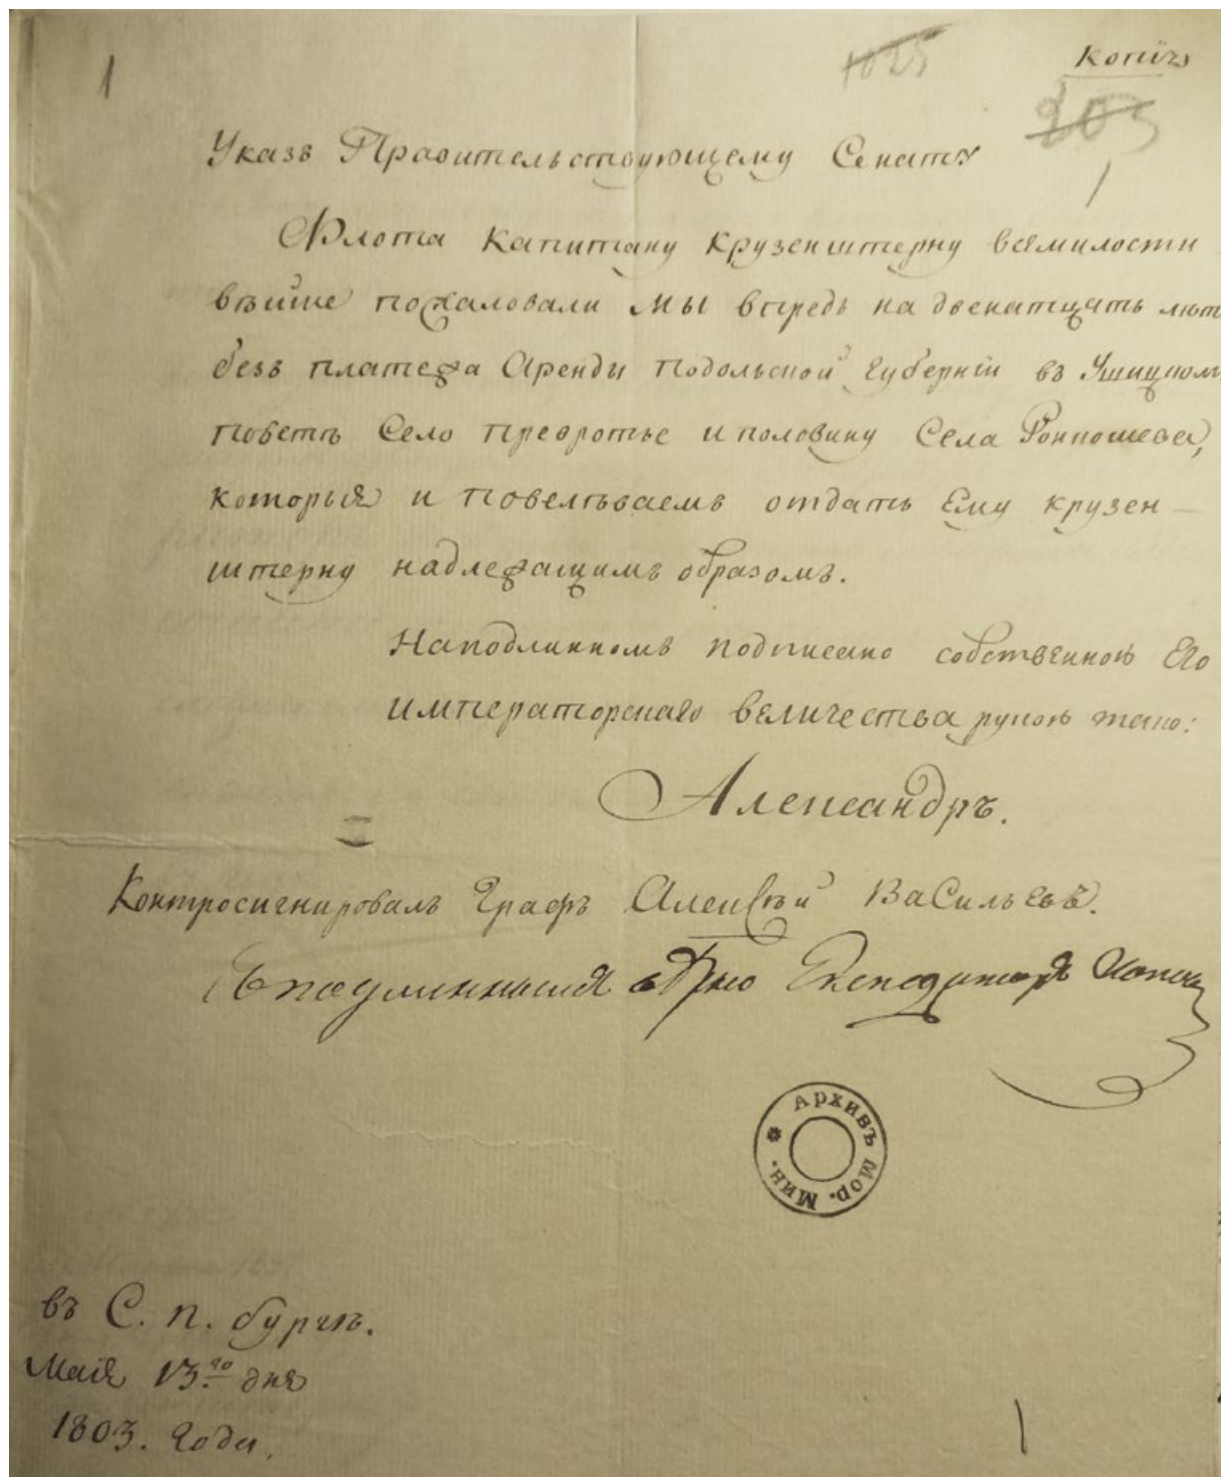 1
1025
Копія
203
1
Указъ Правительствующему Сенату
Флота Капитану Крузенштерну всемилости
вѣйше пожаловали Мы впредь на двенатцать лѣт
безъ платежа Аренды Подольской Губерніи въ Ушицком
Поветѣ Село Превротье и половину Села
которыя и Повелѣваемъ отдать Ему Крузен-
штерну надлежащимъ образомъ.
Наподлинномъ подписано собственною Его
Императорскаго Величества рукою тако:
Александръ.
Контросигнировалъ Графъ Алексѣй Васильевъ.
Архивъ Мор. Мин.
въ С. П. бургѣ.
Маія 13го дня
1803. года.